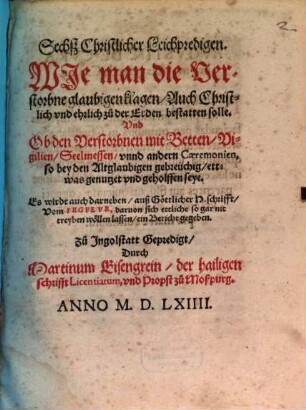 2
Sechß Christlicher Leichpredigen.
WIe man die Ver-
storbne glaubigen klagen / Auch Christ-
lich vnd ehrlich zů der Erden bestatten solle.
Vnd
Ob den Verstorbnen mit Betten / Vi-
gilien / Seelmessen / vnnd andern Cæremonien,
so bey den Altglaubigen gebreüchig / ett-
was genutzet vnd geholffen seye.
Es wirdt auch darneben / auß Göttlicher H. schrifft /
Vom FEGFEVR, daruon sich ettliche so gar nit
treyben wöllen lassen / ein Bericht gegeben.
Zů Ingolstatt Gepredigt /
Durch
Martinum Eisengrein / der hailigen
schrifft Licentiatum, vnd Propst zů Moßpurg.
ANNO M. D. LXIIII.